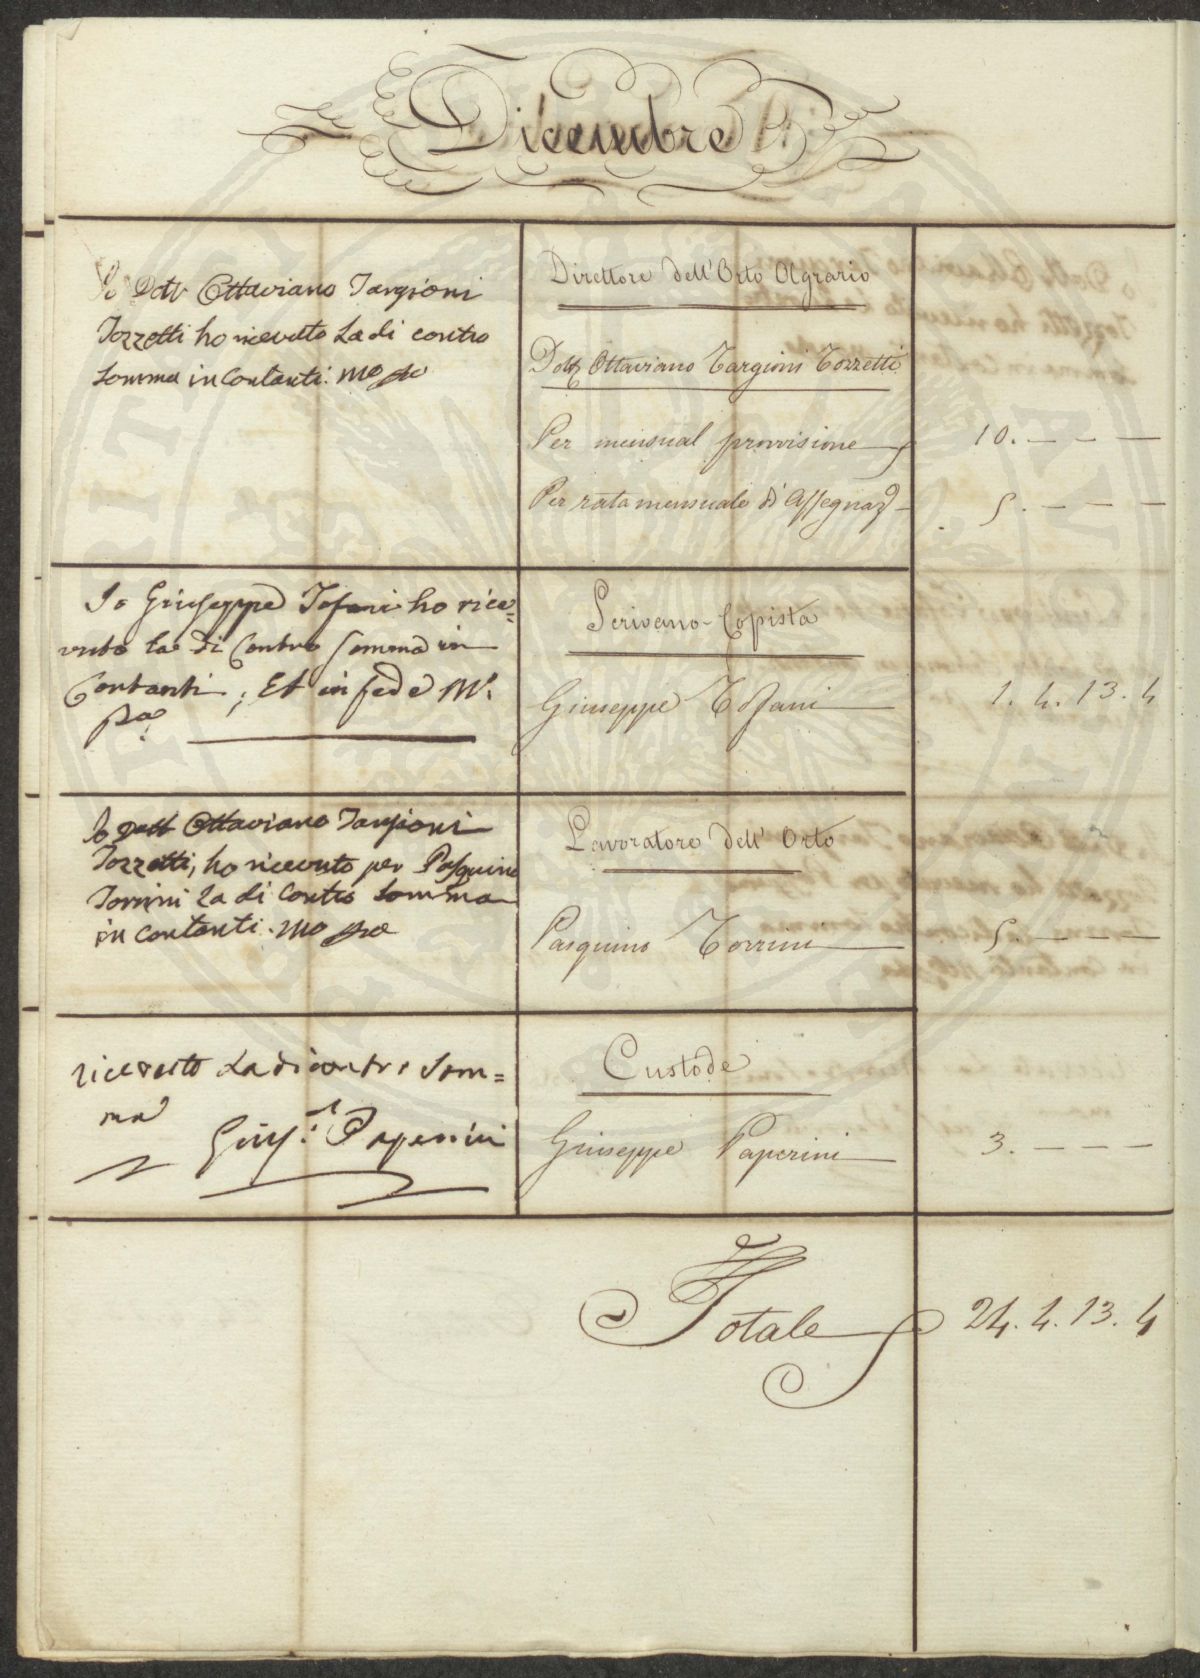 Dicembre
Io Dott Ottaviano Targioni
Tozzetti ho ricevuto La di contro
Somma in Contanti. Mo ppo
Direttore dell'Orto Agrario
Dott Ottaviano Targioni Tozzetti
Per mensual provvisione
10. — — —
Per rata mensuale di Assegnaz
5. — — —
Io Giuseppe Tofani ho rice=
vuto la di Contro Somma in
Contanti; Et in fede M.
ppa
Scrivano-Copista
Giuseppe Tofani
1. 4. 13. 4
Io Dott Ottaviano Targioni
Tozzetti, ho ricevuto per Pasquino
Torrini La di Contro Somma
in contanti. Mo ppo
Lavoratore dell'Orto
Pasquino Torrini
5. — — —
ricevuto La di contro Som=
ma
Gius.e Paperini
Custode
Giuseppe Paperini
3. — — —
Totale
24. 4. 13. 4